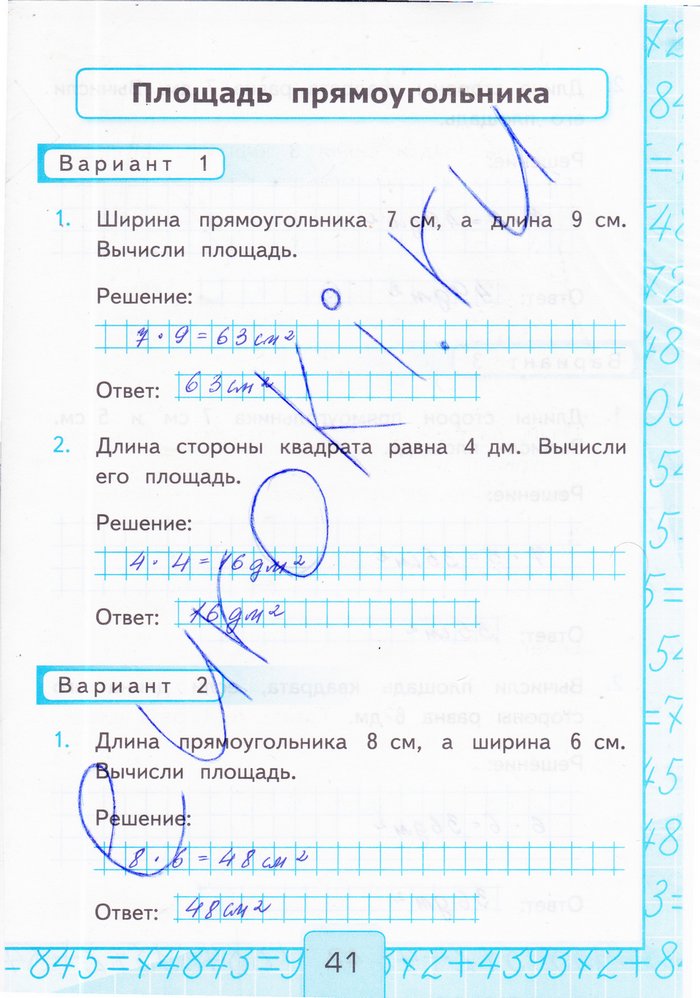 Площадь прямоугольника
Вариант 1
1. Ширина прямоугольника 7 см, а длина 9 см.
Вычисли площадь.
Решение:
7 · 9 = 63 см²
Ответ: 63 см²
2. Длина стороны квадрата равна 4 дм. Вычисли
его площадь.
Решение:
4 · 4 = 16 дм²
Ответ: 16 дм²
Вариант 2
1. Длина прямоугольника 8 см, а ширина 6 см.
Вычисли площадь.
Решение:
8 · 6 = 48 см²
Ответ: 48 см²
41
e uroki.ru